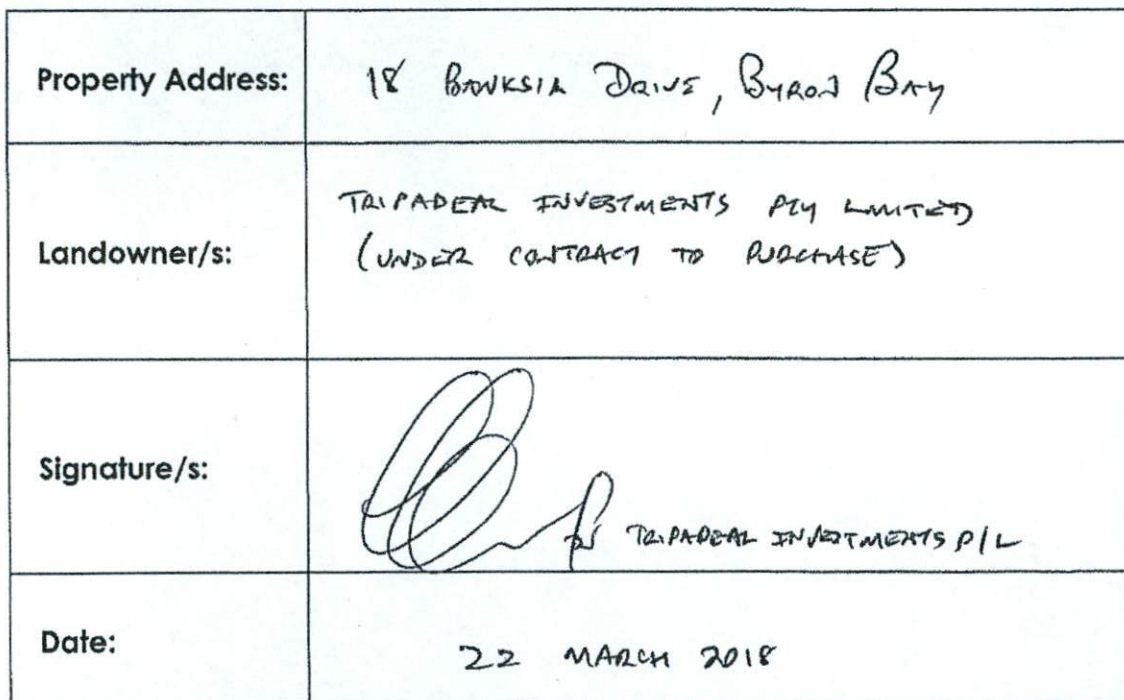 Property Address: 18 BANKSIA DRIVE, BYRON BAY
Landowner/s: TRIPADEAL INVESTMENTS PTY LIMITED
(UNDER CONTRACT TO PURCHASE)
Signature/s: TRIPADEAL INVESTMENTS P/L
Date: 22 MARCH 2018